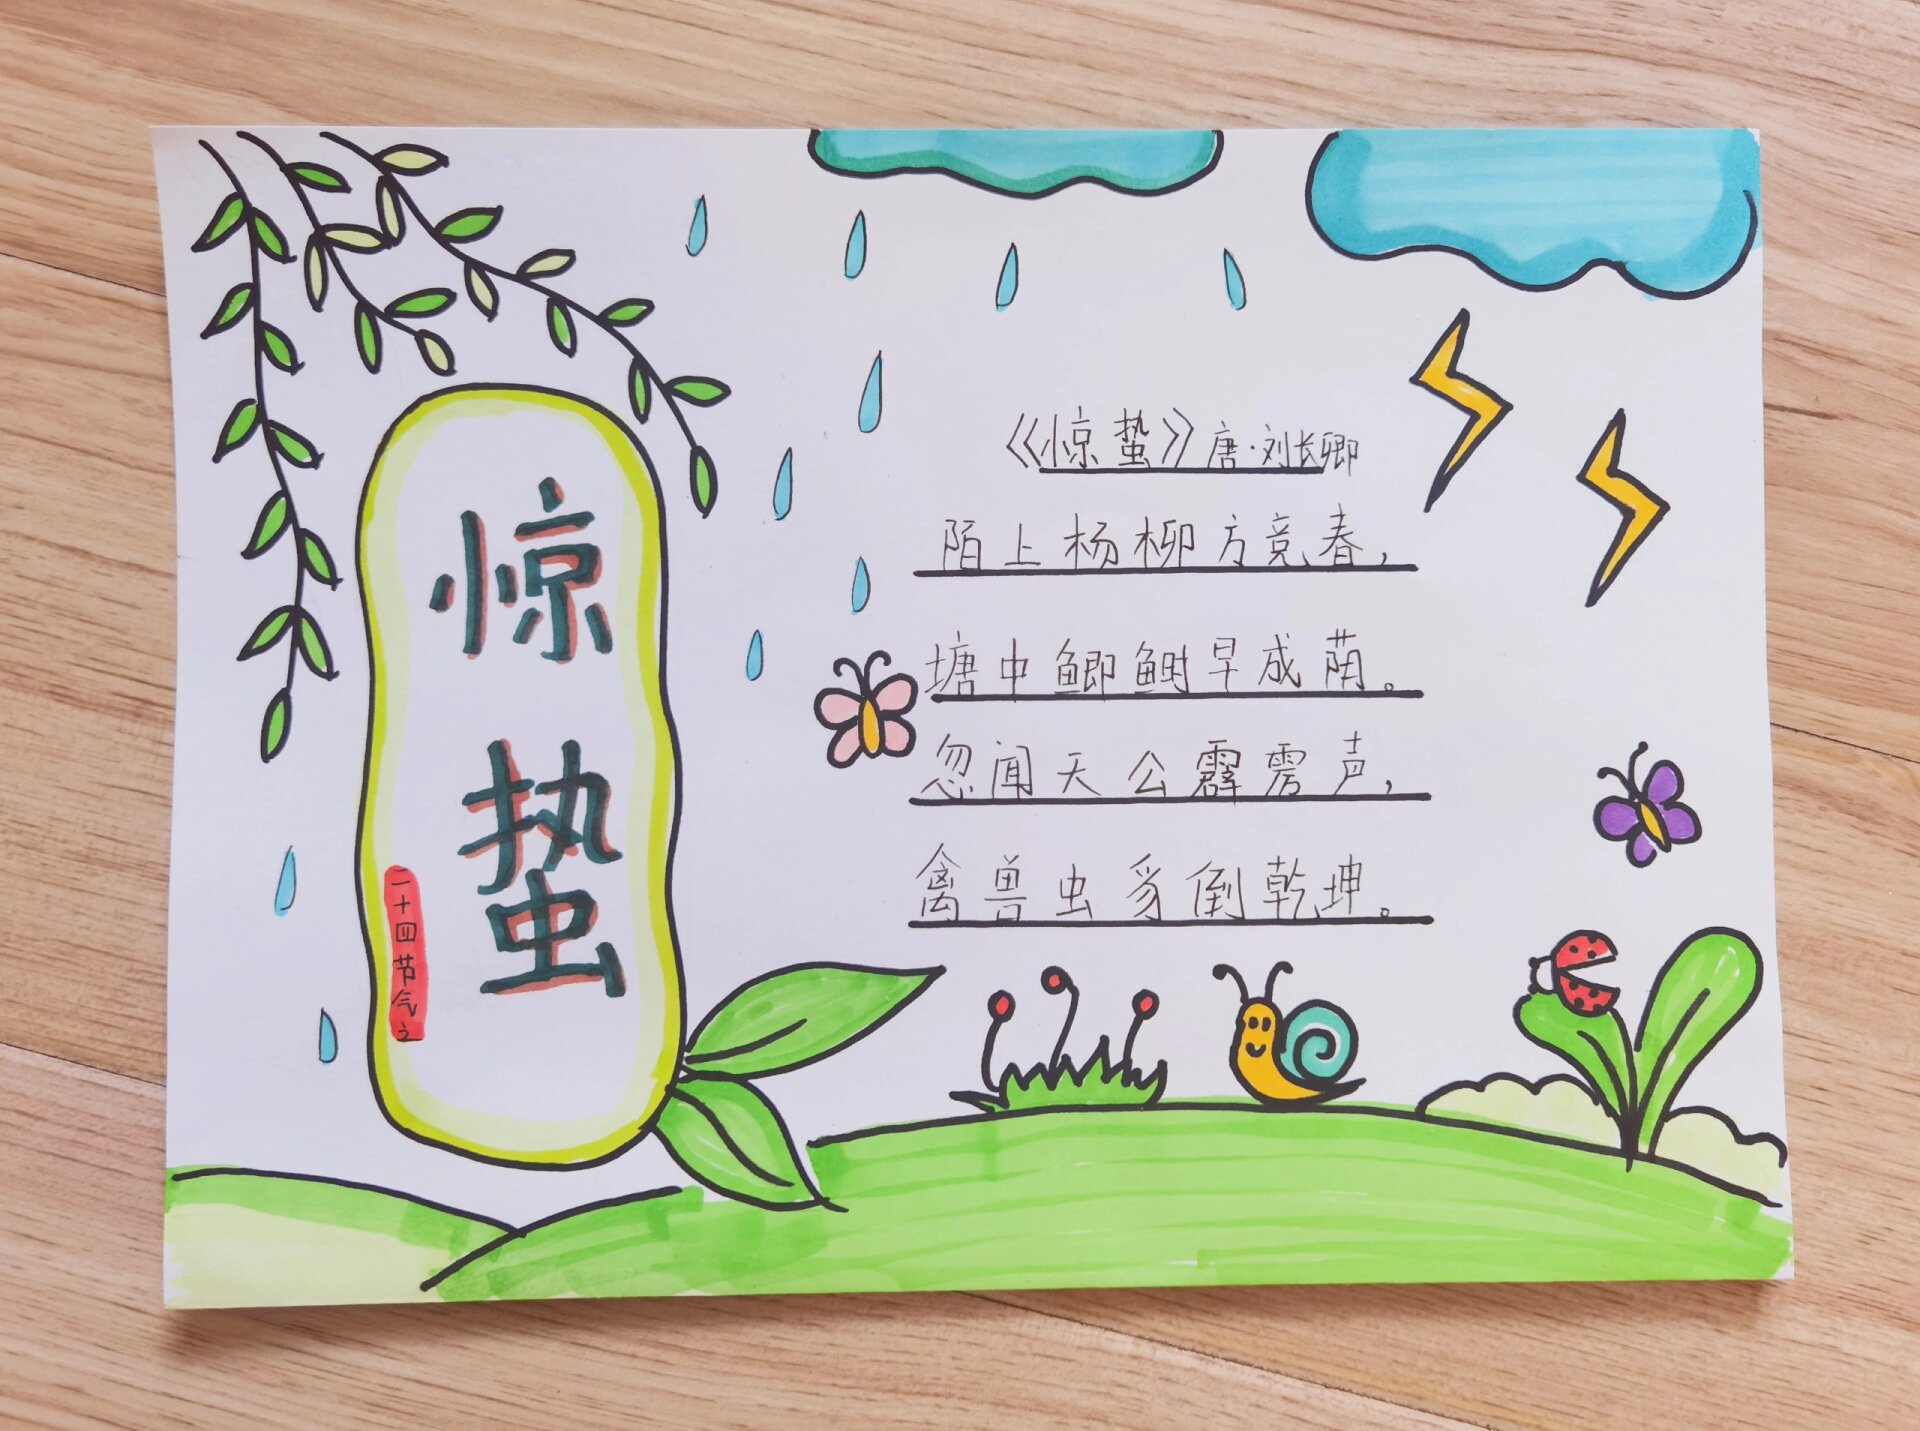 惊蛰
二十四节气之
《惊蛰》唐·刘长卿
陌上杨柳方竞春，
塘中鲫鲥早成荫。
忽闻天公霹雳声，
禽兽虫豸倒乾坤。